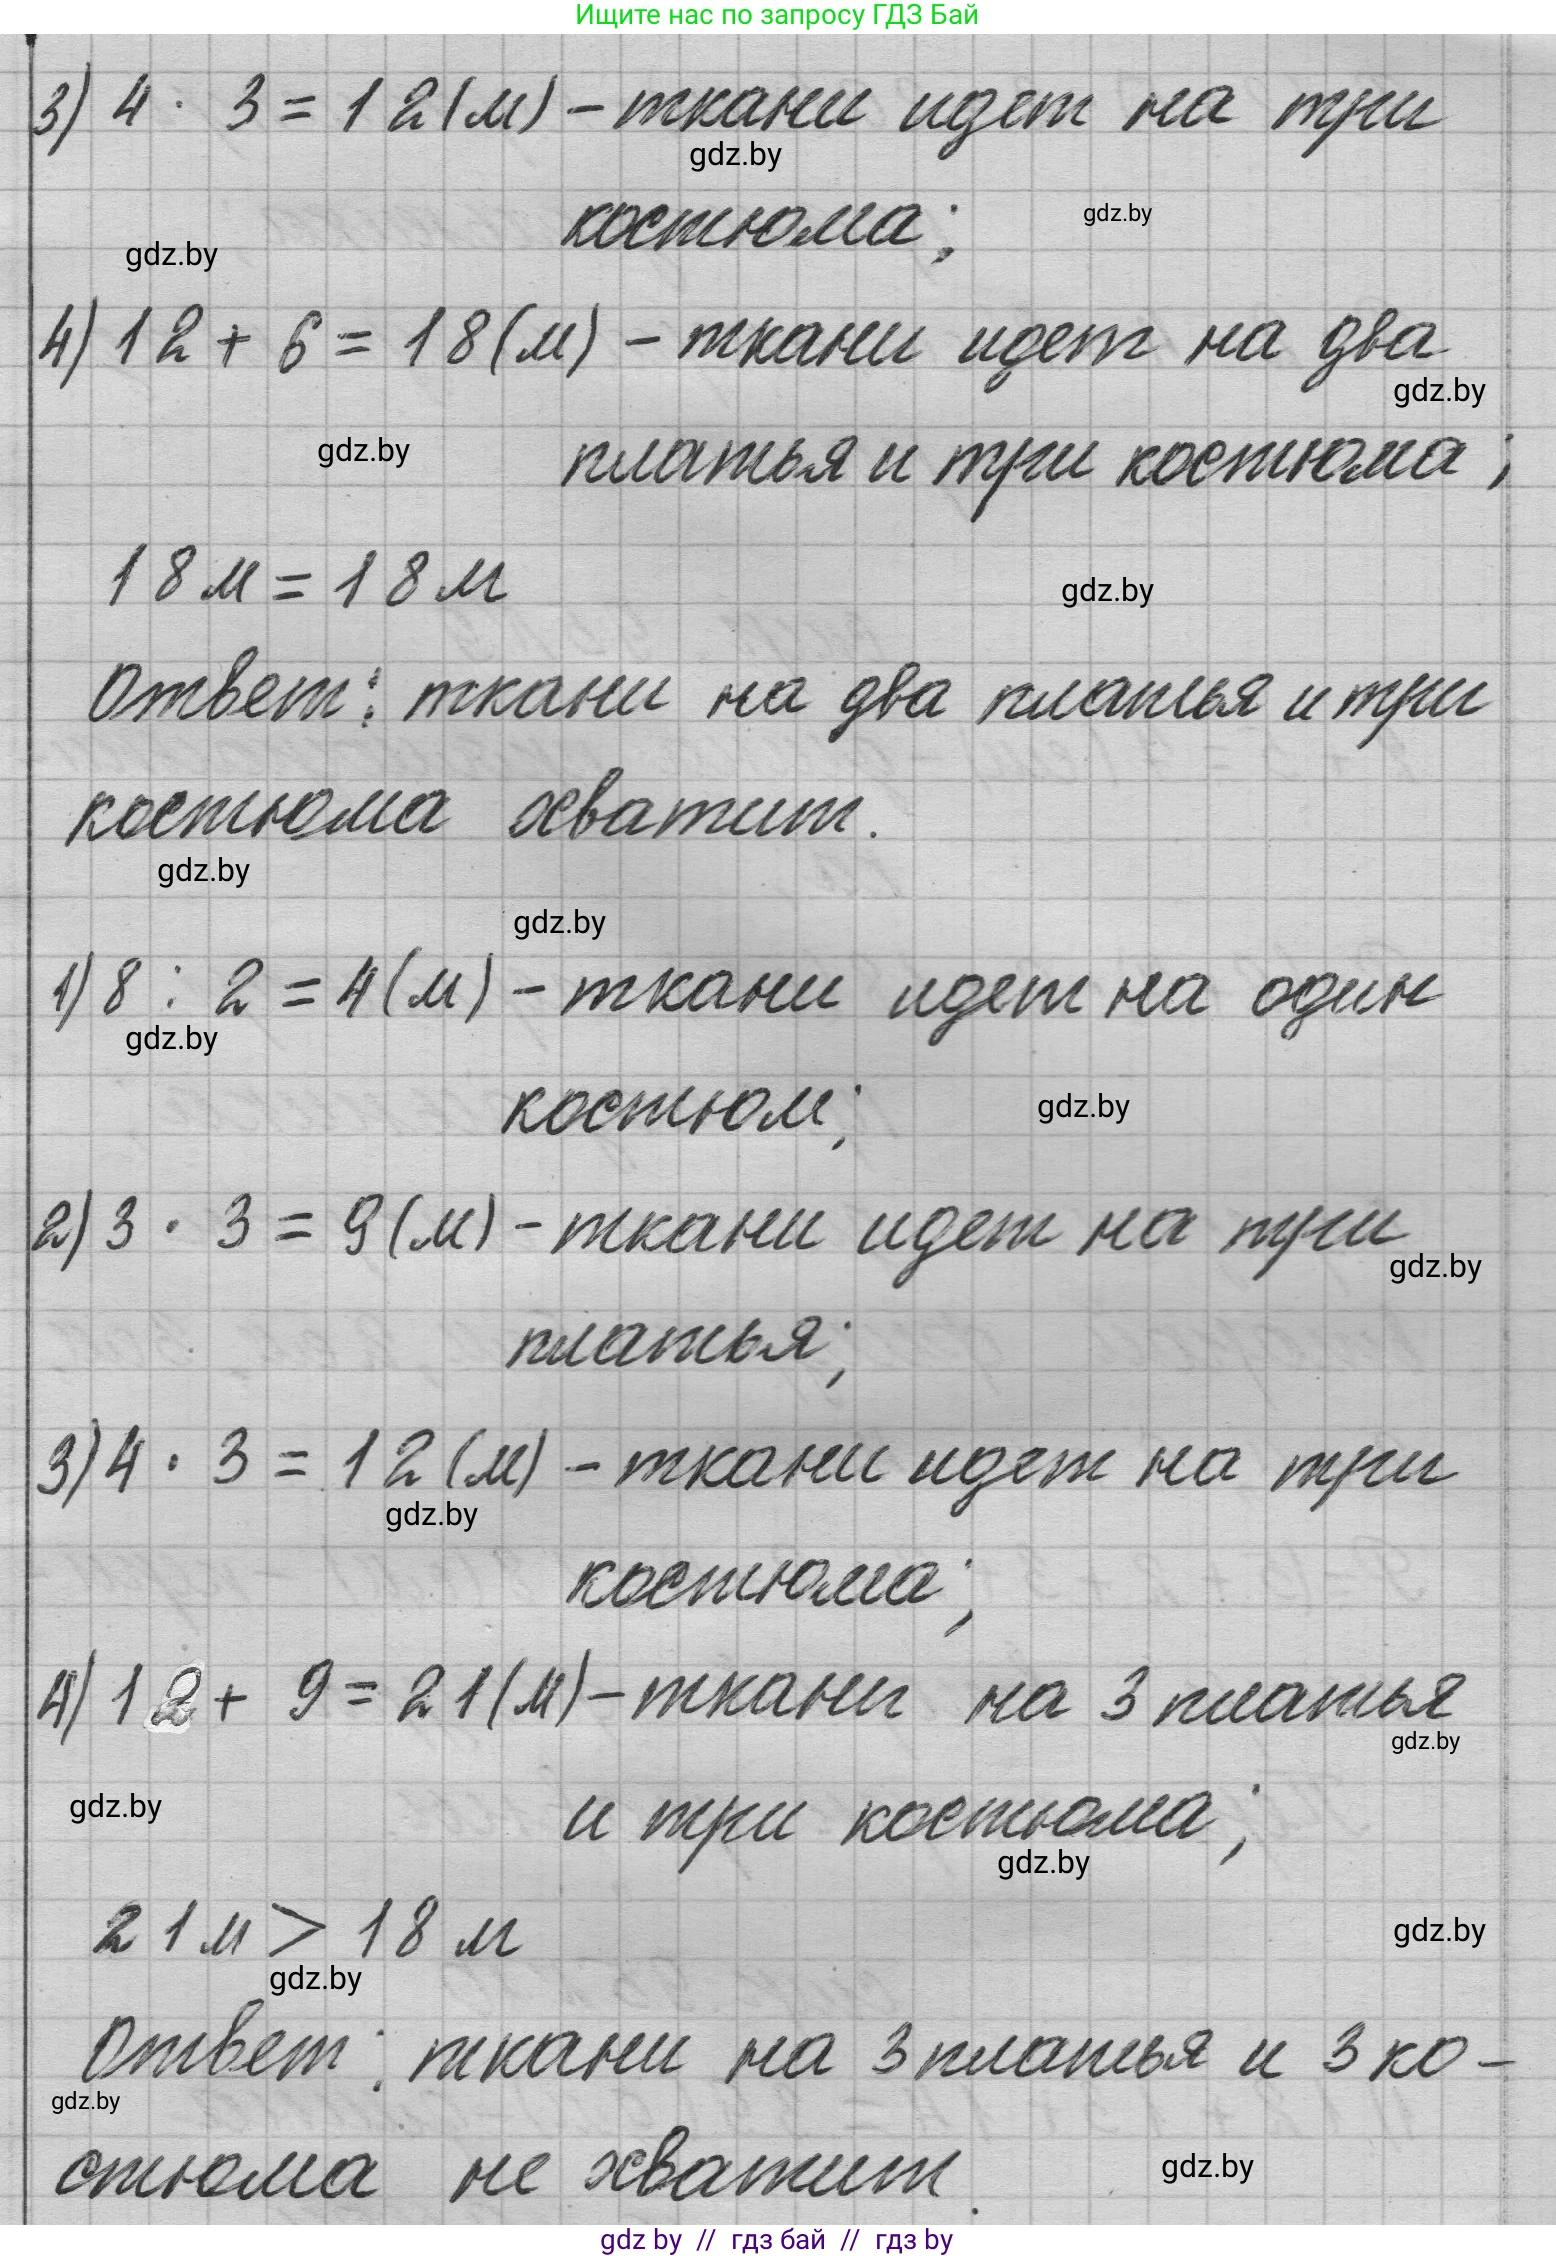 Ищите нас по запросу ГДЗ Бай
3) 4 · 3 = 12 (м) – ткани идет на три
gdz.by
костюма;
gdz.by
gdz.by
4) 12 + 6 = 18 (м) – ткани идет на два
gdz.by
gdz.by
платья и три костюма;
18 м = 18 м
gdz.by
Ответ: ткани на два платья и три
костюма хватит.
gdz.by
gdz.by
1) 8 : 2 = 4 (м) – ткани идет на один
gdz.by
костюм;
gdz.by
2) 3 · 3 = 9 (м) – ткани идет на три
gdz.by
платья;
3) 4 · 3 = 12 (м) – ткани идет на три
gdz.by
костюма;
4) 12 + 9 = 21 (м) – ткани на 3 платья
gdz.by
gdz.by
и три костюма;
gdz.by
21 м > 18 м
gdz.by
gdz.by
Ответ: ткани на 3 платья и 3 ко-
gdz.by
стюма не хватит.
gdz.by
gdz by // гдз бай // гдз by